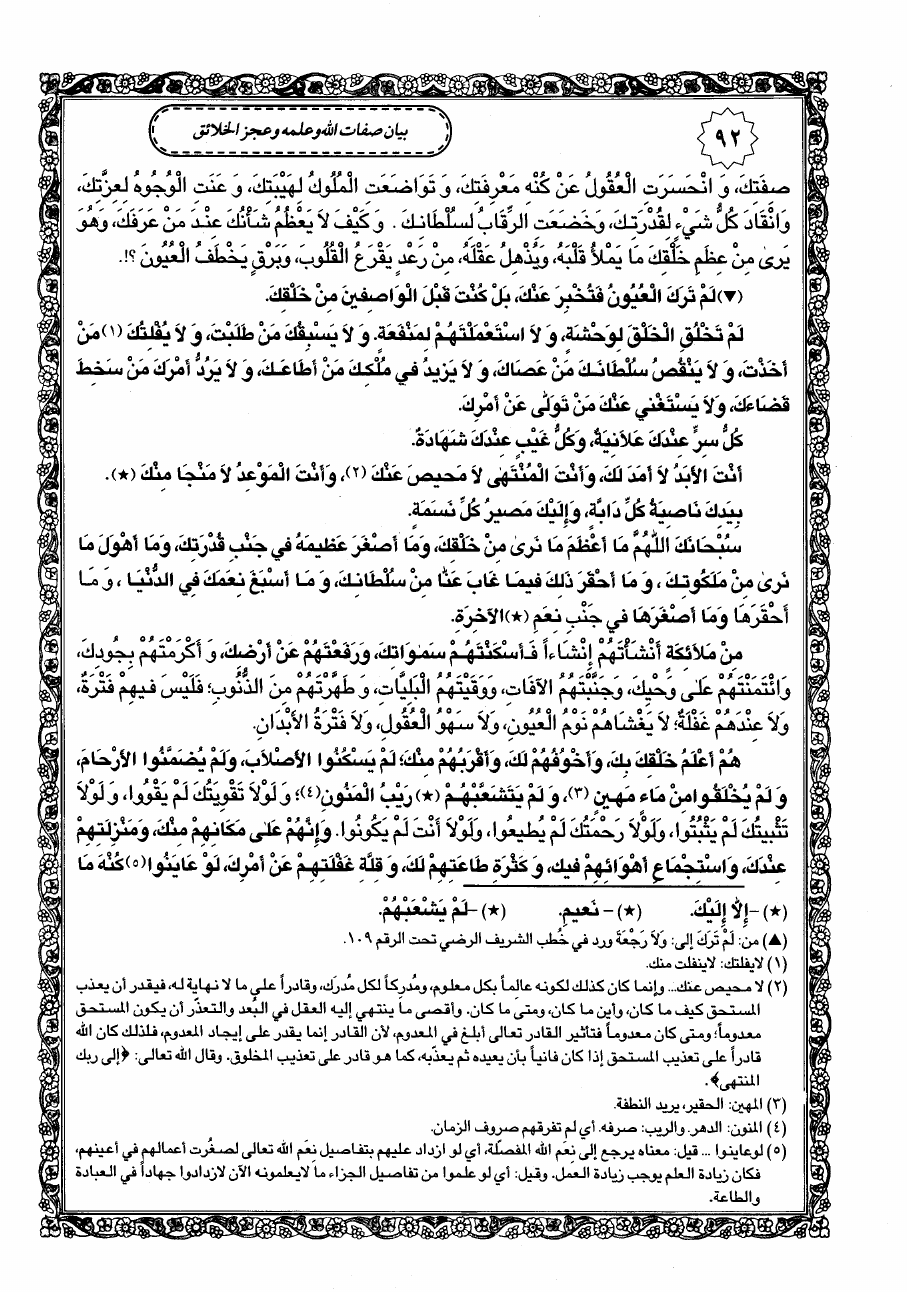 ٩٢
بيان صفات الله وعلمه وعجز الخلائق
صِفَتِكَ، وَ انْحَسَرَتِ الْعُقُولُ عَنْ كُنْهِ مَعْرِفَتِكَ، وَ تَوَاضَعَتِ الْمُلُوكُ لِهَيْبَتِكَ، وَ عَنَتِ الْوُجُوهُ لِعِزَّتِكَ،
وَانْقَادَ كُلُّ شَيْءٍ لِقُدْرَتِكَ، وَخَضَعَتِ الرِّقَابُ لِسُلْطَانِكَ . وَ كَيْفَ لاَ يَعْظُمُ شَأْنُكَ عِنْدَ مَنْ عَرَفَكَ، وَهُوَ
يَرىٰ مِنْ عِظَمِ خَلْقِكَ مَا يَمْلأُ قَلْبَهُ، وَيُذْهِلُ عَقْلَهُ، مِنْ رَعْدٍ يَقْرَعُ الْقُلُوبَ، وَبَرْقٍ يَخْطَفُ الْعُيُونَ ؟!.
(▼) لَمْ تَرَكَ الْعُيُونُ فَتُخْبِرَ عَنْكَ، بَلْ كُنْتَ قَبْلَ الْوَاصِفِينَ مِنْ خَلْقِكَ.
لَمْ تَخْلُقِ الْخَلْقَ لِوَحْشَةٍ، وَ لاَ اسْتَعْمَلْتَهُمْ لِمَنْفَعَةٍ. وَ لاَ يَسْبِقُكَ مَنْ طَلَبْتَ، وَ لاَ يُفْلِتُكَ (١) مَنْ
أَخَذْتَ، وَ لاَ يَنْقُصُ سُلْطَانَكَ مَنْ عَصَاكَ، وَ لاَ يَزِيدُ في مُلْكِكَ مَنْ أَطَاعَكَ، وَ لاَ يَرُدُّ أَمْرَكَ مَنْ سَخِطَ
قَضَاءَكَ، وَلاَ يَسْتَغْني عَنْكَ مَنْ تَوَلّىٰ عَنْ أَمْرِكَ.
كُلُّ سِرٍّ عِنْدَكَ عَلاَنِيَةٌ، وَكُلُّ غَيْبٍ عِنْدَكَ شَهَادَةٌ.
أَنْتَ الأَبَدُ لاَ أَمَدَ لَكَ، وَأَنْتَ الْمُنْتَهىٰ لاَ مَحيصَ عَنْكَ (٢)، وَأَنْتَ الْمَوْعِدُ لاَ مَنْجَا مِنْكَ (★).
بِيَدِكَ نَاصِيَةُ كُلِّ دَابَّةٍ، وَإِلَيْكَ مَصيرُ كُلِّ نَسَمَةٍ.
سُبْحَانَكَ اللّٰهُمَّ مَا أَعْظَمَ مَا نَرىٰ مِنْ خَلْقِكَ، وَمَا أَصْغَرَ عَظيمَهُ في جَنْبِ قُدْرَتِكَ، وَمَا أَهْوَلَ مَا
نَرىٰ مِنْ مَلَكُوتِكَ ، وَ مَا أَحْقَرَ ذَلِكَ فيمَا غَابَ عَنَّا مِنْ سُلْطَانِكَ، وَ مَا أَسْبَغَ نِعَمَكَ فِي الدُّنْيَا ، وَ مَا
أَحْقَرَهَا وَمَا أَصْغَرَهَا في جَنْبِ نِعَمِ (★) الآخِرَةِ.
مِنْ مَلاَئِكَةٍ أَنْشَأْتَهُمْ إِنْشَاءاً فَأَسْكَنْتَهُمْ سَمٰوَاتِكَ، وَرَفَعْتَهُمْ عَنْ أَرْضِكَ، وَ أَكْرَمْتَهُمْ بِجُودِكَ،
وَائْتَمَنْتَهُمْ عَلىٰ وَحْيِكَ، وَجَنَّبْتَهُمُ الآفَاتِ، وَوَقَيْتَهُمُ الْبَلِيَّاتِ، وَ طَهَّرْتَهُمْ مِنَ الذُّنُوبِ؛ فَلَيْسَ فيهِمْ فَتْرَةٌ،
وَلاَ عِنْدَهُمْ غَفْلَةٌ؛ لاَ يَغْشَاهُمْ نَوْمُ الْعُيُونِ، وَلاَ سَهْوُ الْعُقُولِ، وَلاَ فَتْرَةُ الأَبْدَانِ.
هُمْ أَعْلَمُ خَلْقِكَ بِكَ، وَأَخْوَفُهُمْ لَكَ، وَأَقْرَبُهُمْ مِنْكَ؛ لَمْ يَسْكُنُوا الأَصْلاَبَ، وَلَمْ يُضَمَّنُوا الأَرْحَامَ،
وَ لَمْ يُخْلَقُوا مِنْ مَاءٍ مَهينٍ (٣)، وَ لَمْ يَتَشَعَّبْهُمْ (★) رَيْبُ الْمَنُونِ (٤)؛ وَ لَوْلاَ تَقْوِيَتُكَ لَمْ يَقْوَوا، وَ لَوْلاَ
تَثْبيتُكَ لَمْ يَثْبُتُوا، وَلَوْلاَ رَحْمَتُكَ لَمْ يُطيعُوا، وَلَوْلاَ أَنْتَ لَمْ يَكُونُوا. وَإِنَّهُمْ عَلىٰ مَكَانِهِمْ مِنْكَ، وَمَنْزِلَتِهِمْ
عِنْدَكَ، وَاسْتِجْمَاعِ أَهْوَائِهِمْ فيكَ، وَ كَثْرَةِ طَاعَتِهِمْ لَكَ، وَ قِلَّةِ غَفْلَتِهِمْ عَنْ أَمْرِكَ، لَوْ عَايَنُوا (٥) كُنْهَ مَا
(★) -إِلاَّ إِلَيْكَ. (★) - نَعيمِ. (★) -لَمْ يَشْعَبْهُمْ.
(▲) من: لَمْ تَرَكَ إلى: وَلاَ رَجْعَةَ ورد في خُطب الشريف الرضي تحت الرقم ١٠٩.
(١) لايفلتك: لاينفلت منك.
(٢) لا محيص عنك... وإنما كان كذلك لكونه عالماً بكل معلوم، ومُدرِكاً لكل مُدرَك، وقادراً على ما لا نهاية له، فيقدر أن يعذب
المستحق كيف ما كان، وأين ما كان، ومتى ما كان. وأقصى ما ينتهي إليه العقل في البُعد والتعذّر أن يكون المستحق
معدوماً؛ ومتى كان معدوماً فتأثير القادر تعالى أبلغ في المعدوم، لأن القادر إنما يقدر على إيجاد المعدوم، فلذلك كان الله
قادراً على تعذيب المستحق إذا كان فانياً بأن يعيده ثم يعذّبه، كما هو قادر على تعذيب المخلوق. وقال الله تعالى: ﴿إلى ربك
المنتهى﴾.
(٣) المهين: الحقير، يريد النطفة.
(٤) المنون: الدهر. والريب: صرفه. أي لم تفرقهم صروف الزمان.
(٥) لوعاينوا ... قيل: معناه يرجع إلى نعم الله المفصلّة، أي لو ازداد عليهم بتفاصيل نعَم الله تعالى لصغُرت أعمالهم في أعينهم،
فكان زيادة العلم يوجب زيادة العمل. وقيل: أي لو علموا من تفاصيل الجزاء ما لايعلمونه الآن لازدادوا جهاداً في العبادة
والطاعة.